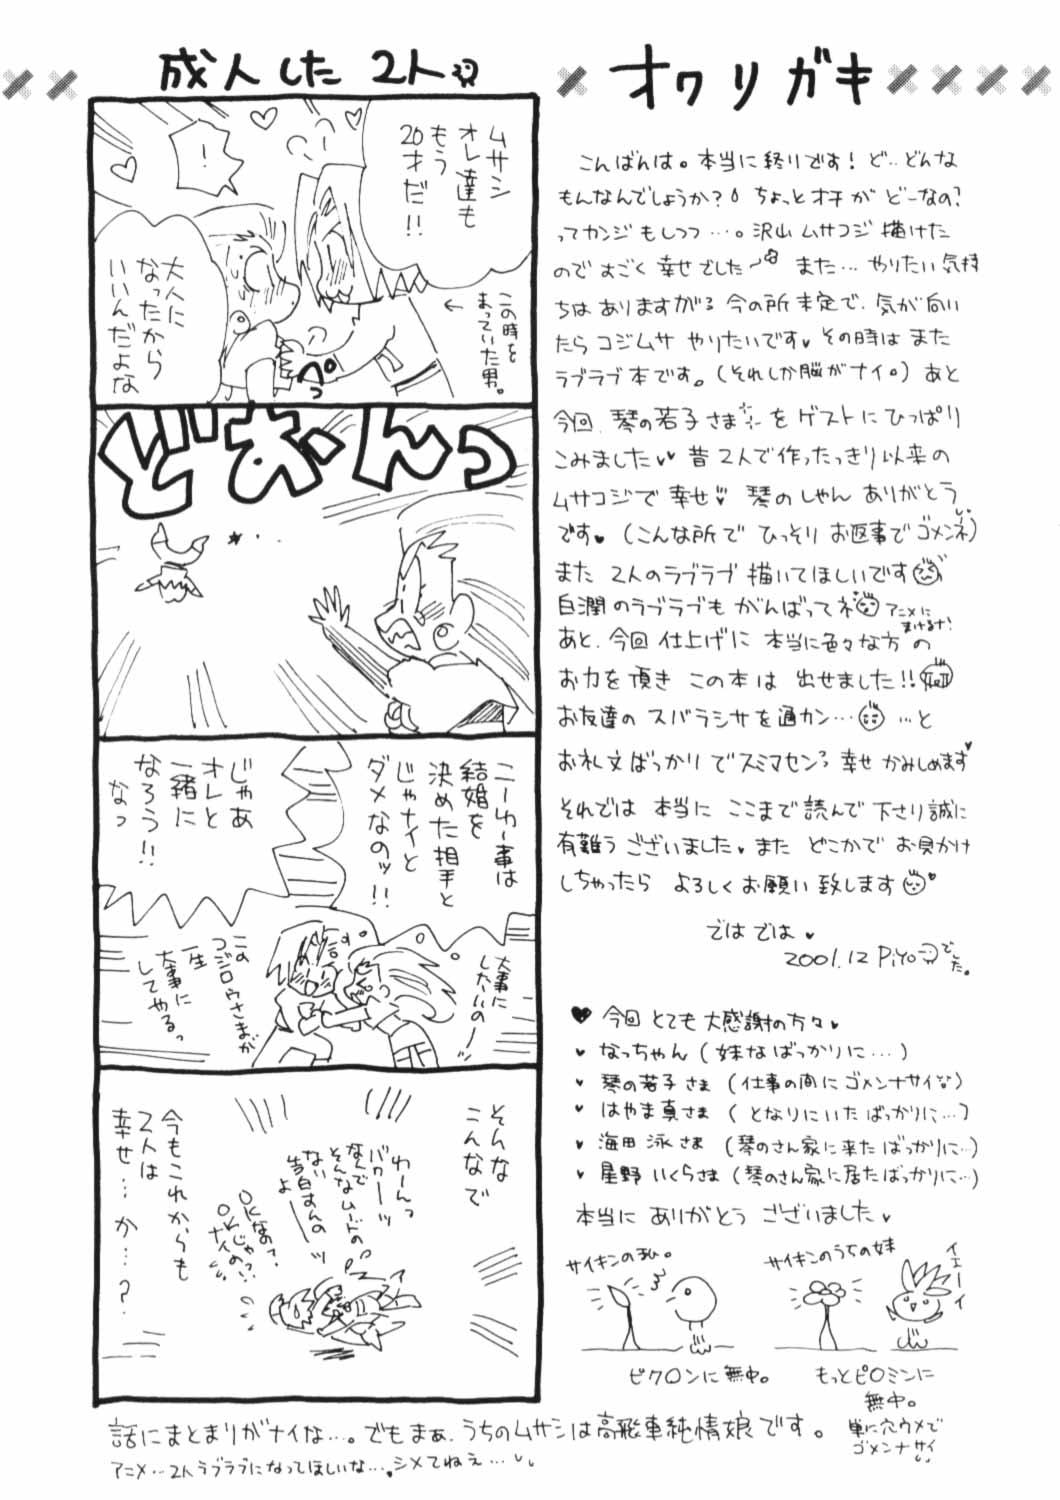 成人した 2人
ムサシ
オレ達も
もう
20才だ!!
!
大人に
なったから
いいんだよな
この時を
まっていた男。
ぺっ
どおーんっ
こーゆー事は
結婚を
決めた相手と
じゃナイと
ダメなのッ!!
じゃあ
オレと
一緒に
なろう!!
なっ
大事に
したいのー
この
コジロウさまが
一生
大事に
してやるっ
そんな
こんなで
わーんっ
バカーッ
なんで
そんなムードの
ない告白すんの
よーッ
OKなの?
OKじゃ
ナイの!?
今もこれからも
2人は
幸せ…か…?
話にまとまりがナイな…。でもまぁ、うちのムサシは高飛車純情娘です。
アニメ…2人ラブラブになってほしいな…シメてねぇ…
オワリガキ
こんばんは。本当に終りです! ど…どんな
もんなんでしょうか? ちょっとオチが どーなの?
ってカンジもしつつ…。沢山 ムサコジ 描けた
のですごく 幸せでした〜 また… やりたい気持
ちはありますがる 今の所未定で、気が向い
たら コジムサ やりたいです♥ その時は また
ラブラブ本です。(それしか脳がナイ。) あと
今回、琴の若子さま をゲストにひっぱり
こみました♥♥ 昔2人で作ったっきり以来の
ムサコジで 幸せ♥ 琴のしゃん ありがとう
です♥ (こんな所で ひっそり お返事で ゴメンネ)
また 2人のラブラブ 描いてほしいです
白潤のラブラブも がんばってネ アニメに
まけるな!
あと、今回 仕上げに 本当に色々な方の
お力を頂き この本は 出せました!!
お友達の スバラシサを 通カン… …と
お礼文ばっかりでスミマセンっ 幸せ かみしめます♥
それでは 本当に ここまで読んで下さり誠に
有難うございました♥ また どこかで お見かけ
しちゃったら よろしくお願い致します♥
ではでは♥
2001.12 Piyoでした。
♥ 今回 とても 大感謝の方々♥
♥ なっちゃん (妹なばっかりに…)
♥ 琴の若子さま (仕事の間にゴメンナサイ)
♥ はやま真さま (となりにいたばっかりに…)
♥ 海田 泳さま (琴のさん家に来たばっかりに…)
♥ 星野 いくらさま (琴のさん家に居たばっかりに…)
本当に ありがとう ございました♥
サイキンの私。
ピク〇ンに無中。
サイキンのうちの妹
イエーイ
もっとピ〇ミンに
無中。
単に穴ウメで
ゴメンナサイ